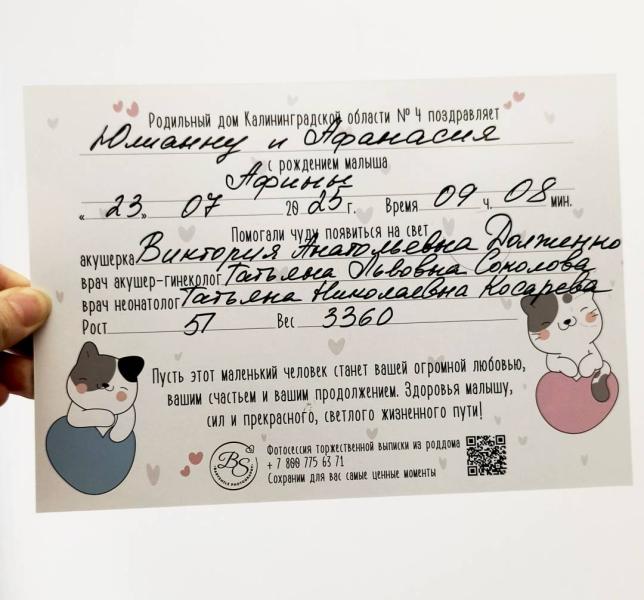 Родильный дом Калининградской области № 4 поздравляет
Юлианну и Афанасия
с рождением малыша
Афины
« 23 » 07 2025 г. Время 09 ч. 08 мин.
Помогали чуду появиться на свет
акушерка Виктория Анатольевна Долженко
врач акушер-гинеколог Татьяна Львовна Соколова
врач неонатолог Татьяна Николаевна Косарева
Рост 51 Вес 3360
Пусть этот маленький человек станет вашей огромной любовью,
вашим счастьем и вашим продолжением. Здоровья малышу,
сил и прекрасного, светлого жизненного пути!
BS
Фотосессия торжественной выписки из роддома
+ 7 800 775 63 71
Сохраним для вас самые ценные моменты